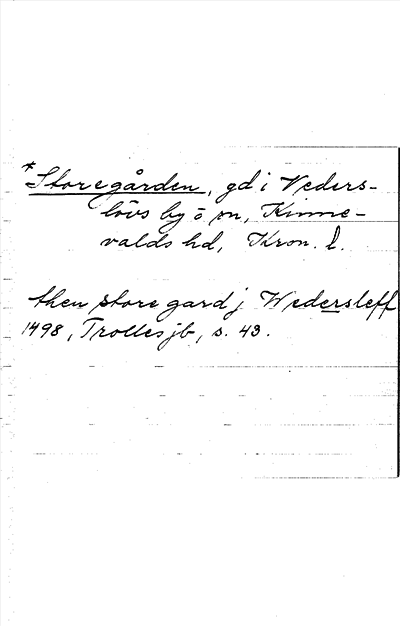 *Storegården, gd i Veders-
lövs by o. sn, Kinne-
valds hd, Kron. l.
then store gard j Wedersleff
1498, Trolles jb, s. 43.